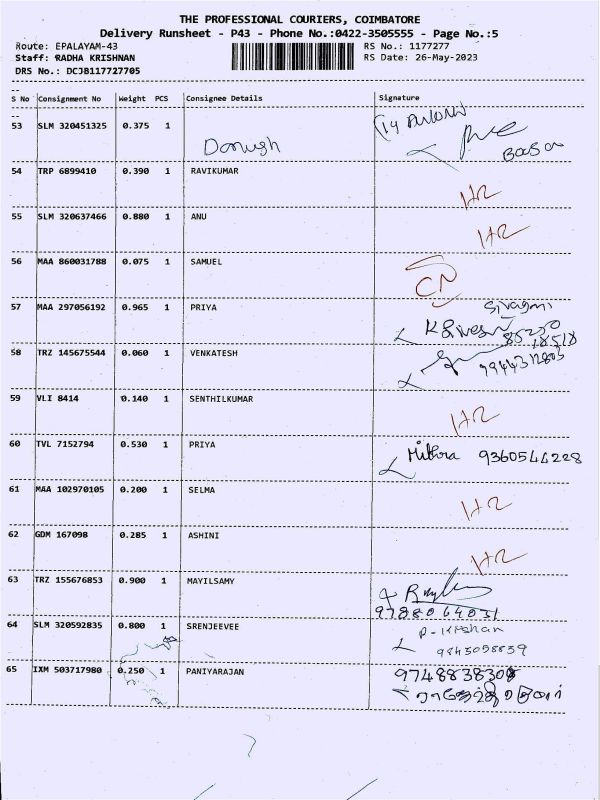 THE PROFESSIONAL COURIERS, COIMBATORE
Delivery Runsheet - P43 - Phone No.:0422-3505555 - Page No.:5
Route: EPALAYAM-43 RS No.: 1177277
Staff: RADHA KRISHNAN RS Date: 26-May-2023
DRS No.: DCJB117727705
S No Consignment No Weight PCS Consignee Details Signature
53 SLM 320451325 0.375 1
54 TRP 6899410 0.390 1 RAVIKUMAR
55 SLM 320637466 0.880 1 ANU
56 MAA 860031788 0.075 1 SAMUEL CN
57 MAA 297056192 0.965 1 PRIYA
58 TRZ 145675544 0.060 1 VENKATESH
59 VLI 8414 0.140 1 SENTHILKUMAR
60 TVL 7152794 0.530 1 PRIYA Mithra
61 MAA 102970105 0.200 1 SELMA
62 GDM 167098 0.285 1 ASHINI
63 TRZ 155676853 0.900 1 MAYILSAMY
9788064031
64 SLM 320592835 0.800 1 SRENJEEVEE P-Krishan
65 IXM 503717980 0.250 1 PANIYARAJAN 9748838308